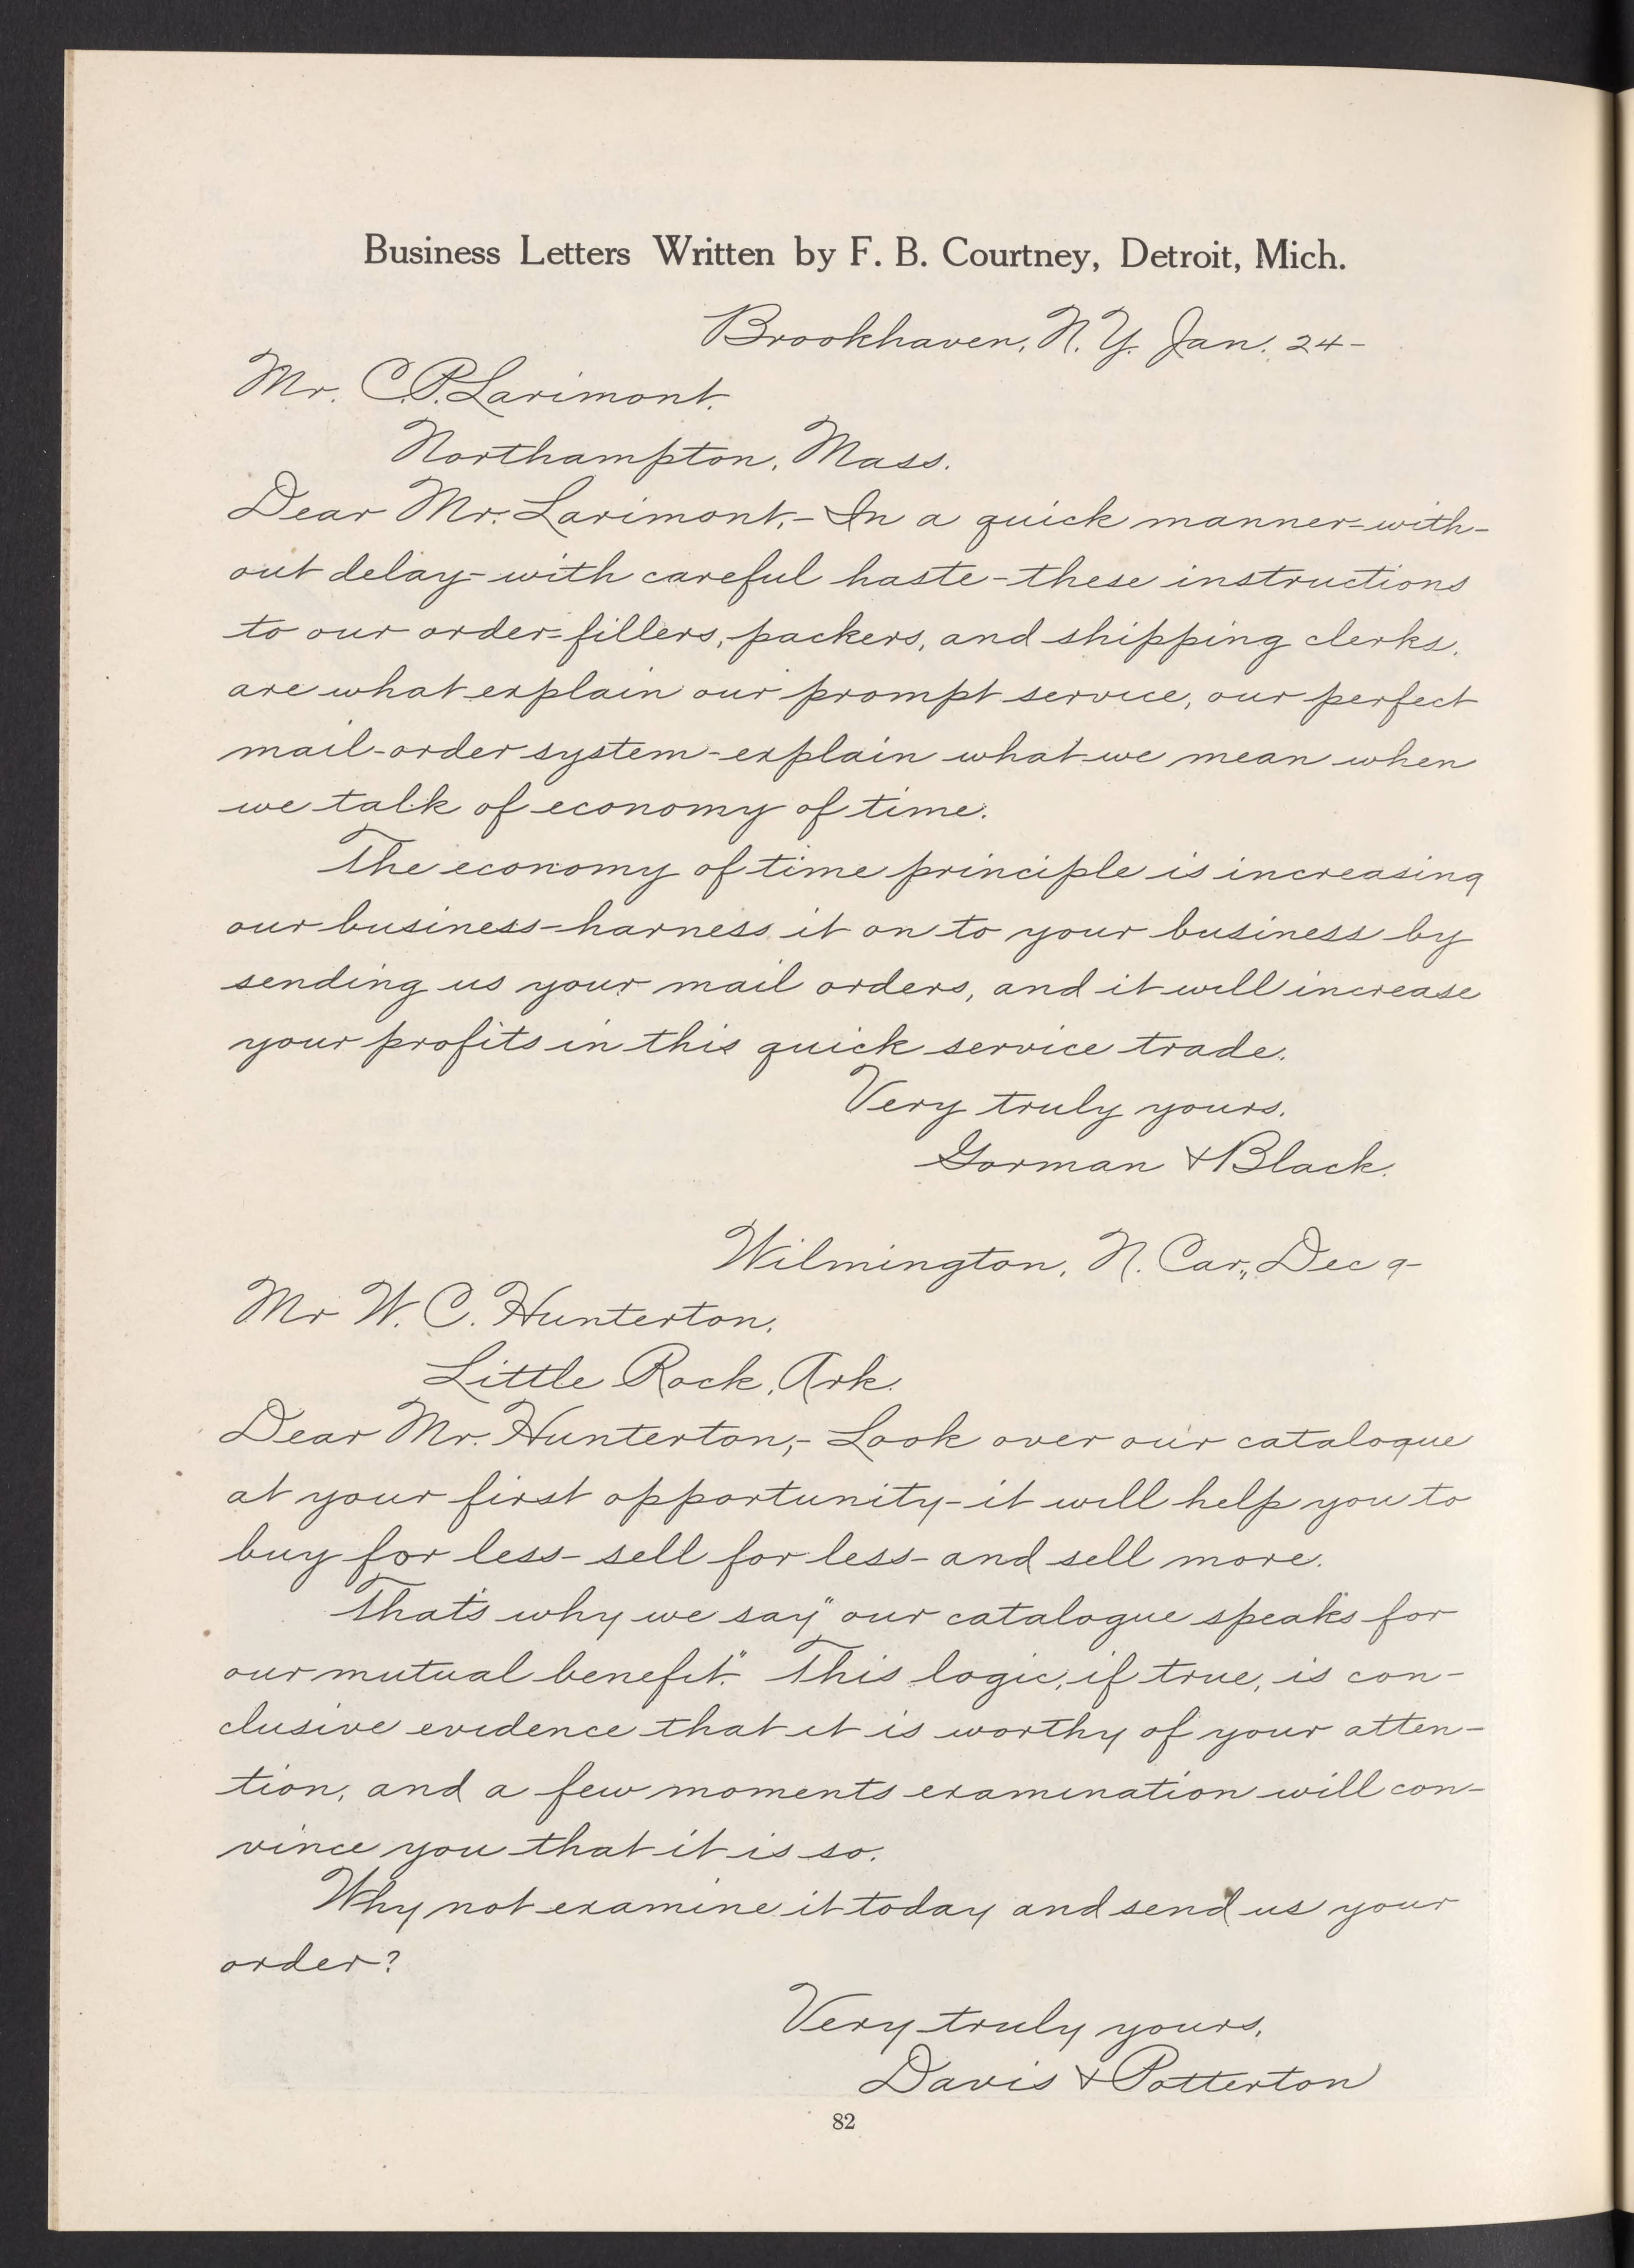 Business Letters Written by F. B. Courtney, Detroit, Mich.
Brookhaven, N. Y. Jan. 24-
Mr. C. P. Larimont.
Northampton, Mass.
Dear Mr. Larimont,- In a quick manner-with-
out delay-with careful haste-these instructions
to our order-fillers, packers, and shipping clerks,
are what explain our prompt service, our perfect
mail-order system-explain what we mean when
we talk of economy of time.
The economy of time principle is increasing
our business-harness it on to your business by
sending us your mail orders, and it will increase
your profits in this quick service trade.
Very truly yours.
Gorman & Black.
Wilmington, N. Car., Dec 9-
Mr W. C. Hunterton,
Little Rock, Ark.
Dear Mr. Hunterton,- Look over our catalogue
at your first opportunity-it will help you to
buy for less-sell for less-and sell more.
That's why we say "our catalogue speaks for
our mutual benefit." This logic, if true, is con-
clusive evidence that it is worthy of your atten-
tion, and a few moments examination will con-
vince you that it is so.
Why not examine it today and send us your
order?
Very truly yours,
Davis & Potterton
82